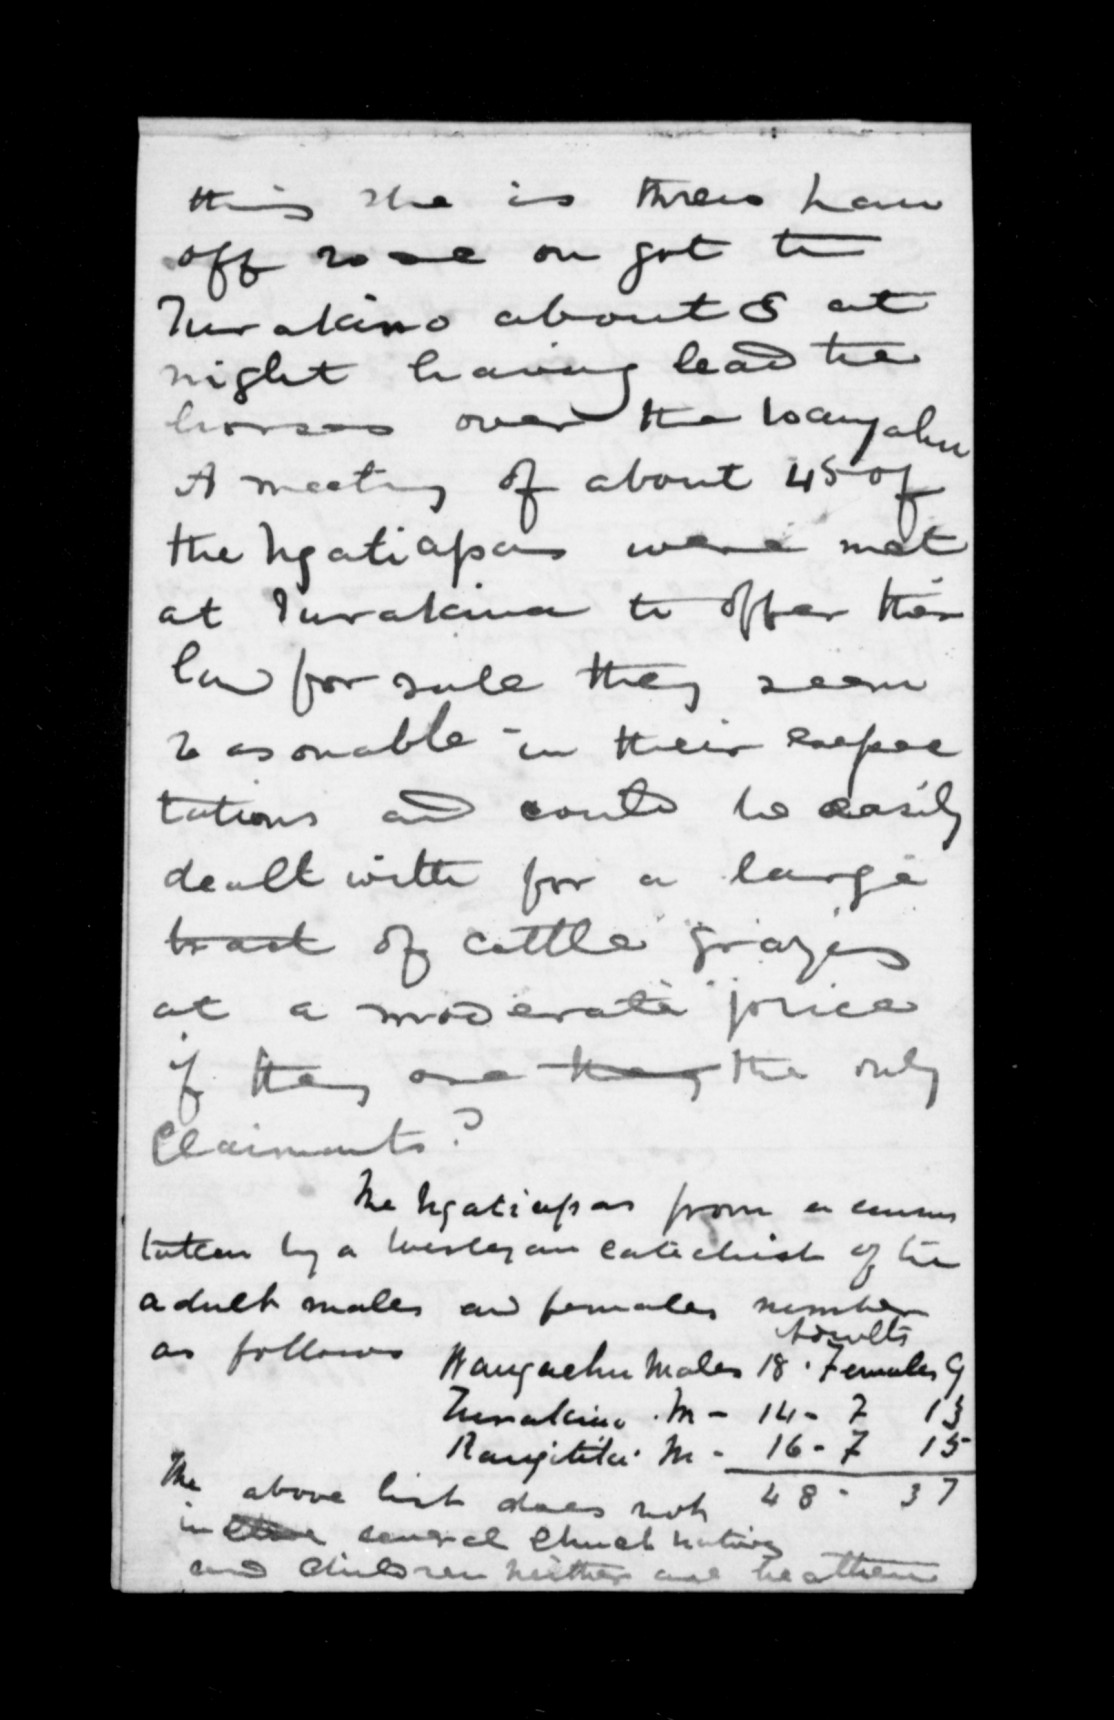 thing she is threw
off rode on got to
Turakino about 8 at
night having lead the
horses over the Wangahu
A meeting of about 45 of
the Ngatiapas were met
at Turakina to offer their
land for sale they seem
reasonable in their expec
tations and could be easily
dealt with for a large
tract of cattle grazing
at a moderate price
if they are they the only
Claimants?
The Ngatiapas from a census
taken by a Wesleyan catechist of the
adult males and females number
Adults
as follows Wangaehu Males 18 . Females 9
Turakina . M - 14 - F 13
Rangitikei M - 16 - F 15
48 - 37
The above list does not
in several Church natives
and children neither are heathen